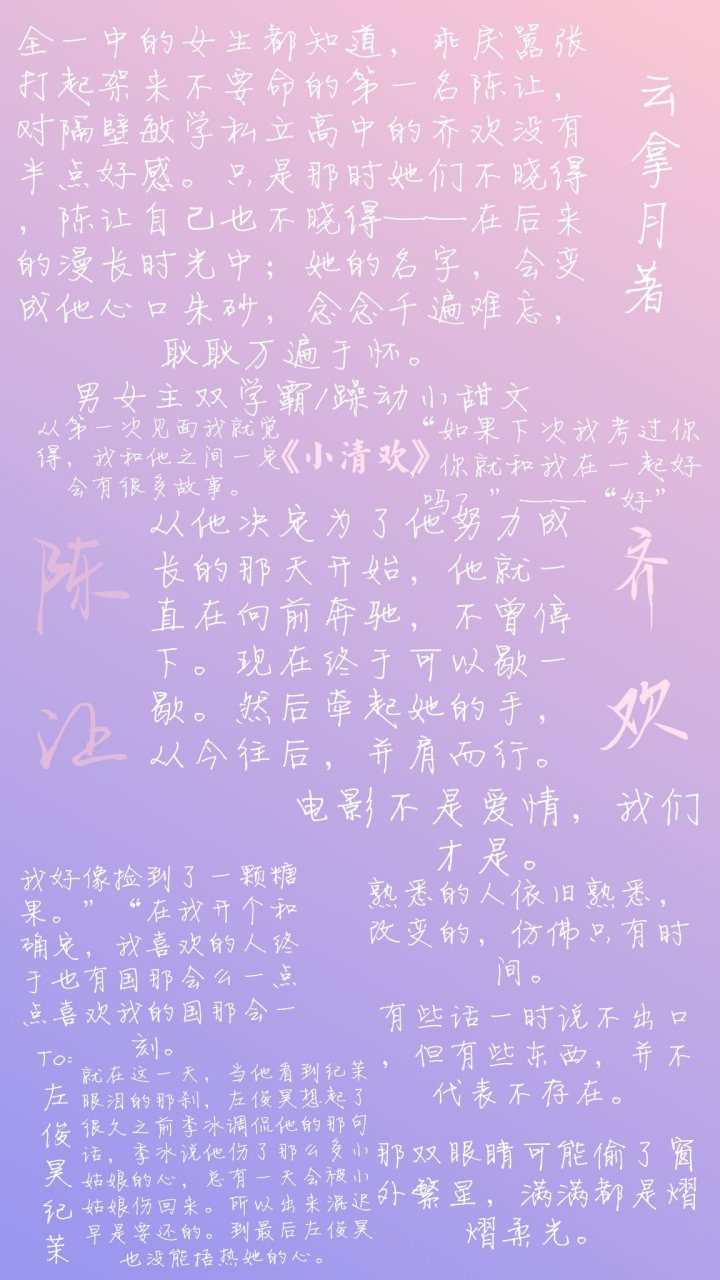 全一中的女生都知道，乖戾嚣张
打起架来不要命的第一名陈让，
对隔壁敏学私立高中的齐欢没有
半点好感。只是那时她们不晓得
，陈让自己也不晓得——在后来
的漫长时光中；她的名字，会变
成他心口朱砂，念念千遍难忘，
耿耿万遍于怀。
云拿月著
男女主双学霸/躁动小甜文
从第一次见面我就觉
得，我和他之间一定
会有很多故事。
《小清欢》
“如果下次我考过你
，你就和我在一起好
吗？”——“好”
陈让
从他决定为了他努力成
长的那天开始，他就一
直在向前奔驰，不曾停
下。现在终于可以歇一
歇。然后牵起她的手，
从今往后，并肩而行。
齐欢
电影不是爱情，我们
才是。
我好像捡到了一颗糖
果。”“在我开个和
确定，我喜欢的人终
于也有国那会么一点
点喜欢我的国那会一
刻。
熟悉的人依旧熟悉，
改变的，仿佛只有时
间。
有些话一时说不出口
，但有些东西，并不
代表不存在。
TO:
左俊昊纪茉
就在这一天，当他看到纪茉
眼泪的那刹，左俊昊想起了
很久之前季冰调侃他的那句
话，季冰说他伤了那么多小
姑娘的心，总有一天会被小
姑娘伤回来。所以出来混迟
早是要还的。到最后左俊昊
也没能捂热她的心。
那双眼睛可能偷了窗
外繁星，满满都是熠
熠柔光。